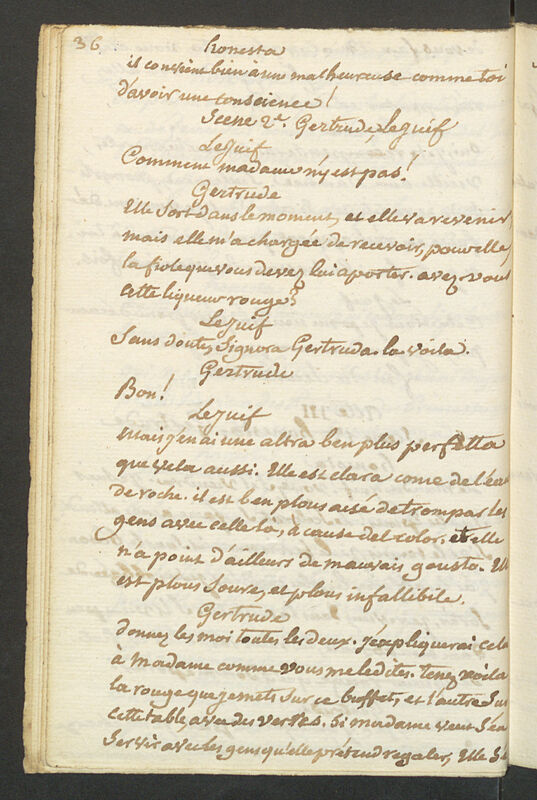 36.
honesta
il convient bien à une malheureuse comme toi
d'avoir une conscience!
Scene 2e. Gertrude, Le juif
Le juif
Comment madame n'y est pas!
Gertrude
Elle sort dans le moment, et elle va revenir,
mais elle m'a chargée de recevoir, pour elle,
la fiole que vous devez lui aporter. avez vous
cette liqueur rouge?
Le juif
Sans doute, Signora Gertruda. la voila.
Gertrude
Bon!
Le juif
mais j'en ai une altra ben plus perfetta
que vela aussi. Elle est clara come de l'eau
de roche. il est ben plous aisé de trompar les
gens avec celle la, à cause del color. et elle
n'a point d'ailleurs de mauvais gousto. Elle
est plous soure, et plous infallibile.
Gertrude
donnez les moi toutes les deux. j'expliquerai cela
à madame comme vous me le dites. tenez voila
la rouge que je mets sur ce buffet, et l'autre sur
cette table, avec des verres. si madame veut s'en
servir avec les gens qu'elle prétend regaler, Elle